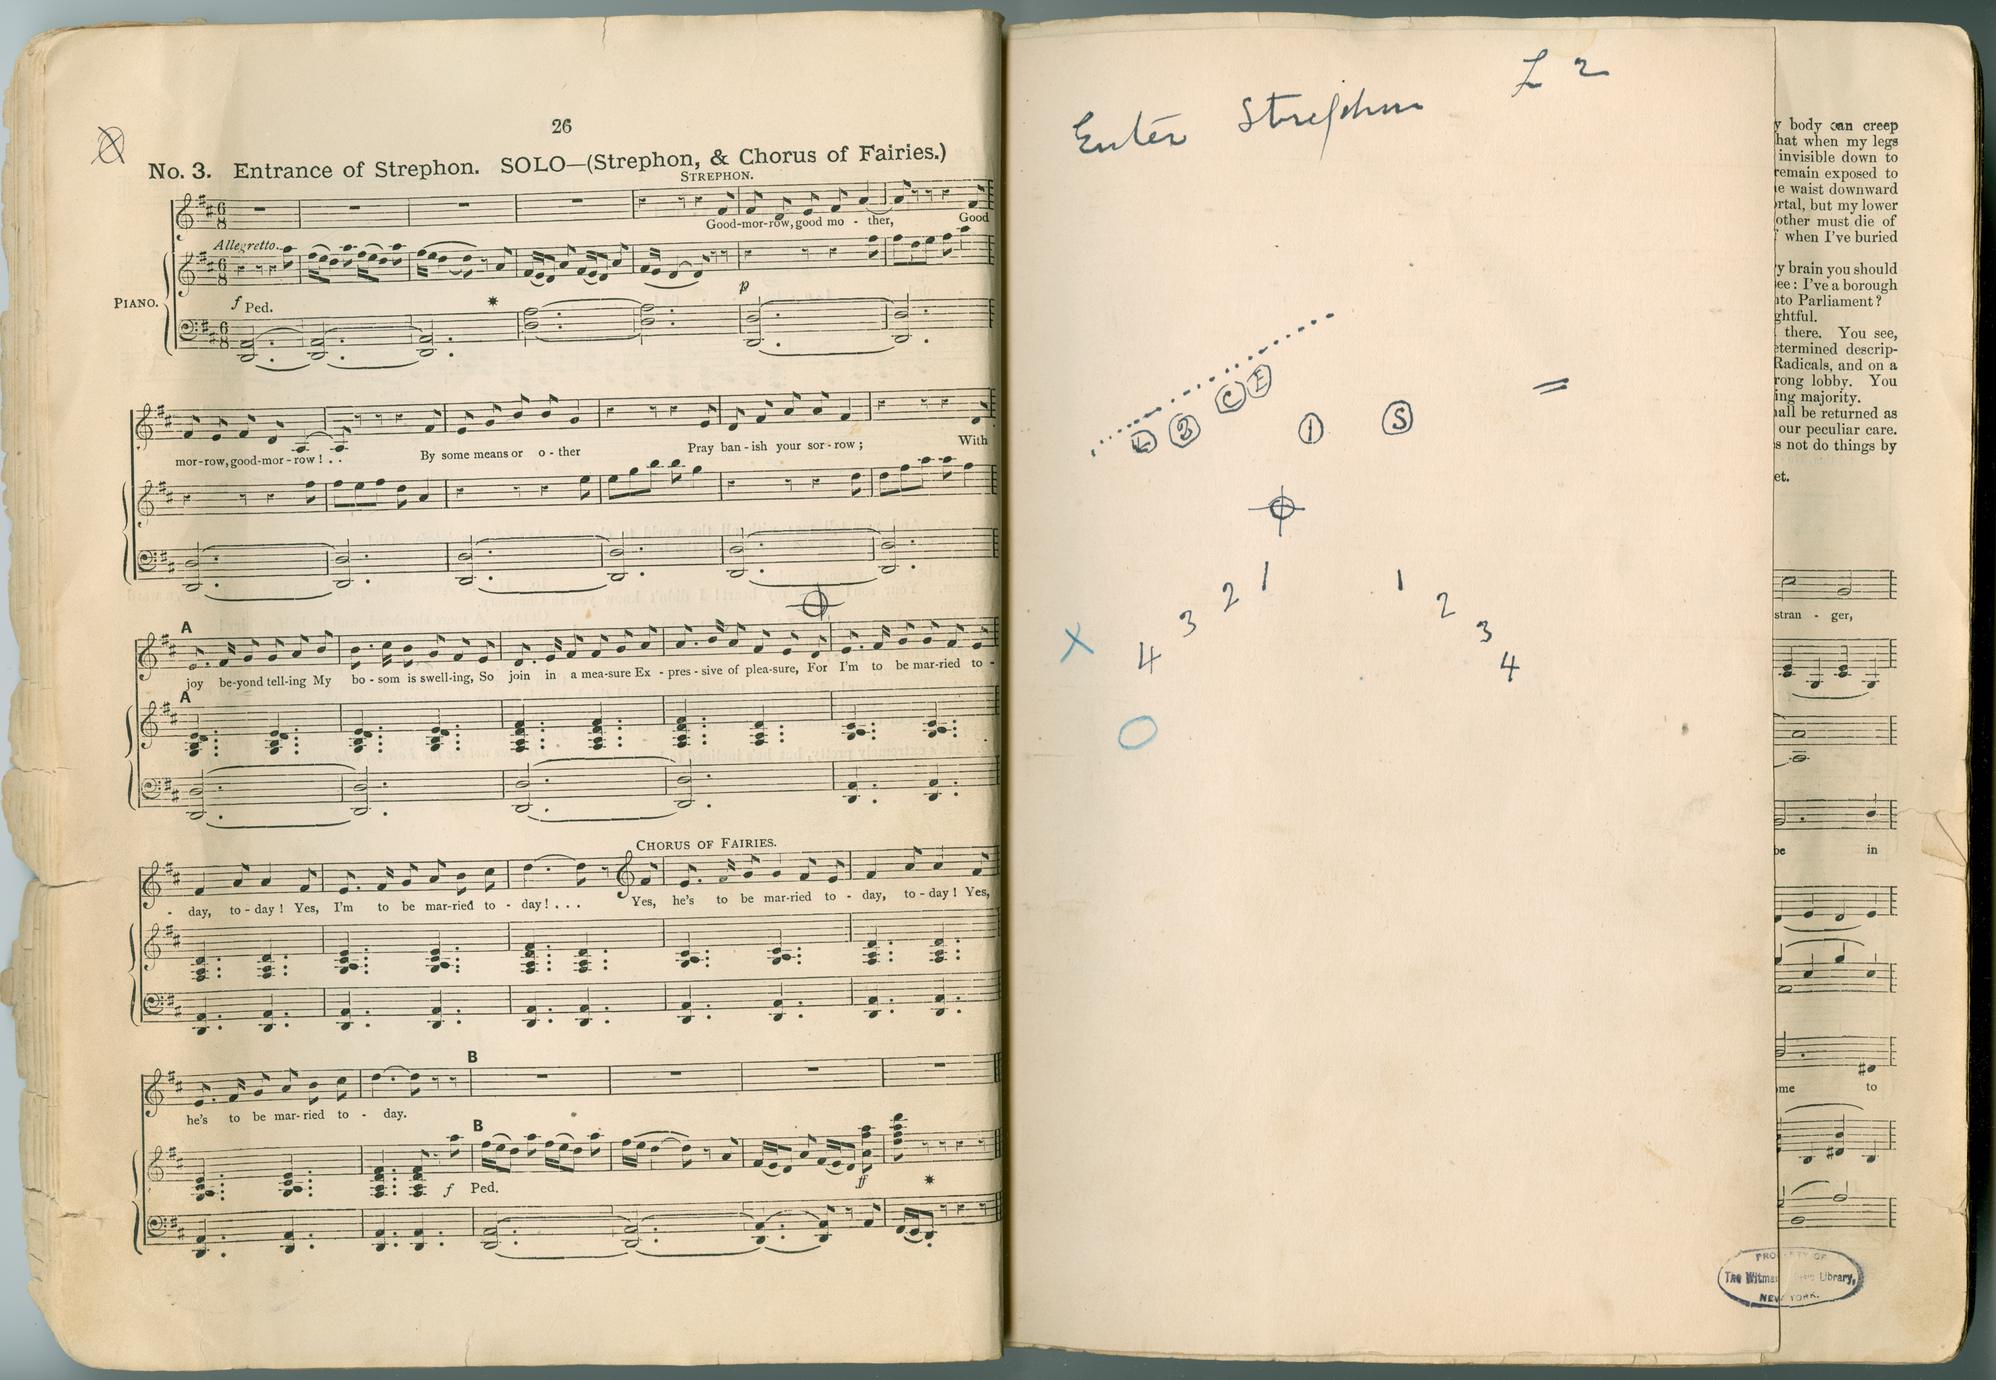 26
No. 3. Entrance of Strephon. SOLO—(Strephon, & Chorus of Fairies.)
STREPHON.
Good-mor-row, good mo - ther, Good
Allegretto.
PIANO.
f Ped.
p
mor-row, good-mor-row! . . By some means or o - ther Pray ban - ish your sor - row; With
A
joy be-yond tell-ing My bo - som is swell-ing, So join in a mea-sure Ex - pres - sive of plea-sure, For I'm to be mar-ried to -
A
CHORUS OF FAIRIES.
- day, to - day! Yes, I'm to be mar-ried to - day! . . . Yes, he's to be mar-ried to - day, to - day! Yes,
B
he's to be mar-ried to - day.
B
f Ped.
ff
Enter Strephon L 2
L B C E
1 S
1 1
2 2
3 3
4 4
X
O
y body can creep
hat when my legs
invisible down to
remain exposed to
e waist downward
ortal, but my lower
other must die of
when I've buried
y brain you should
see: I've a borough
nto Parliament?
ghtful.
there. You see,
etermined descrip-
Radicals, and on a
rong lobby. You
ing majority.
hall be returned as
our peculiar care.
s not do things by
et.
stran - ger,
be in
ome to
PROPERTY OF
The Witmark Library,
NEW YORK.